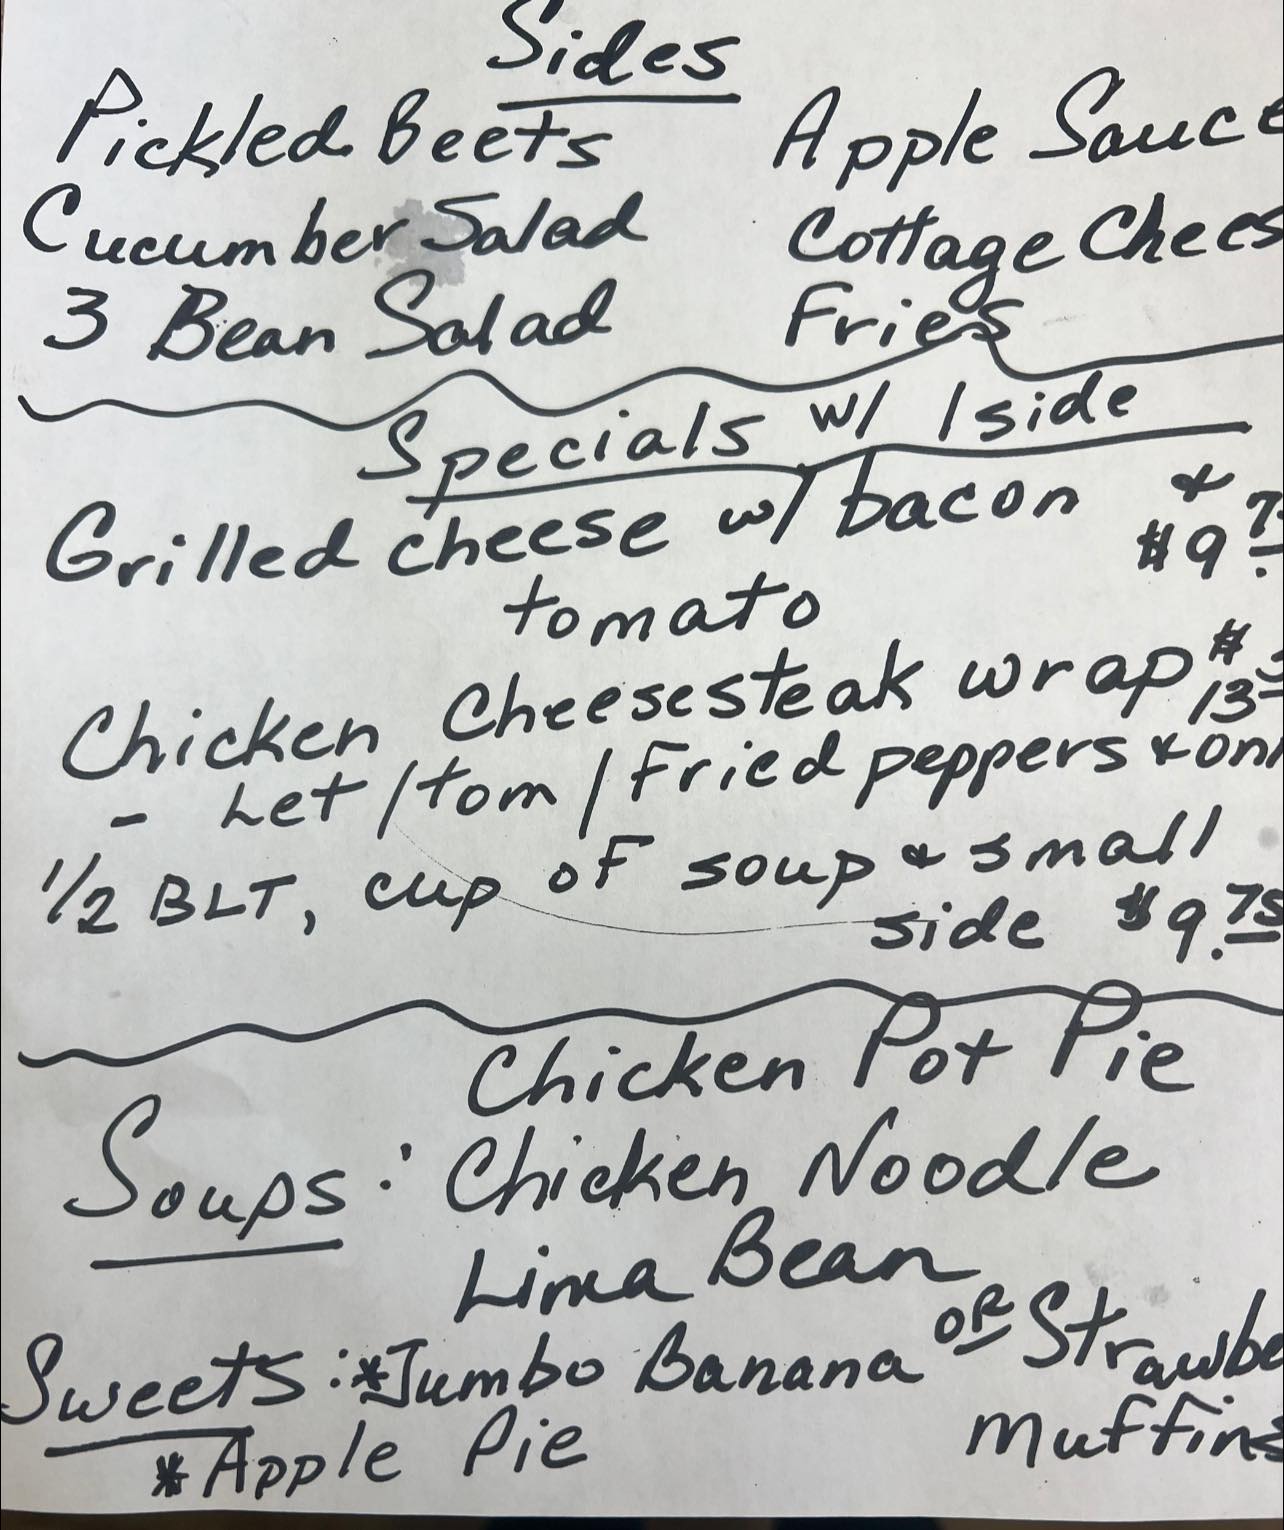 Sides
Pickled Beets Apple Sauce
Cucumber Salad Cottage Chees
3 Bean Salad Fries
Specials w/ 1 side
Grilled cheese w/ bacon &
tomato $9.7
Chicken Cheesesteak wrap $13
- Let/tom/Fried peppers & oni
1/2 BLT, cup of soup & small
side $9.75
Chicken Pot Pie
Soups: Chicken Noodle
Lima Bean
Sweets: *Jumbo Banana OR Strawbe
Muffins
*Apple Pie